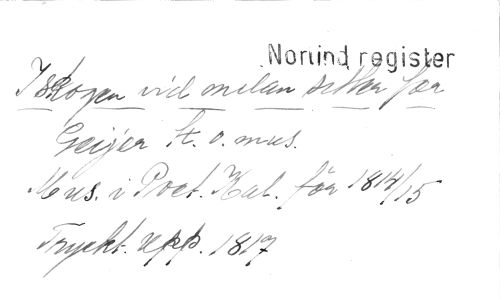 Norlind register
I skogen vid milan sitter jag
Geijer t. o. mus.
Mus. i Poet. Kal. för 1814/15
Tryckt. upp. 1817